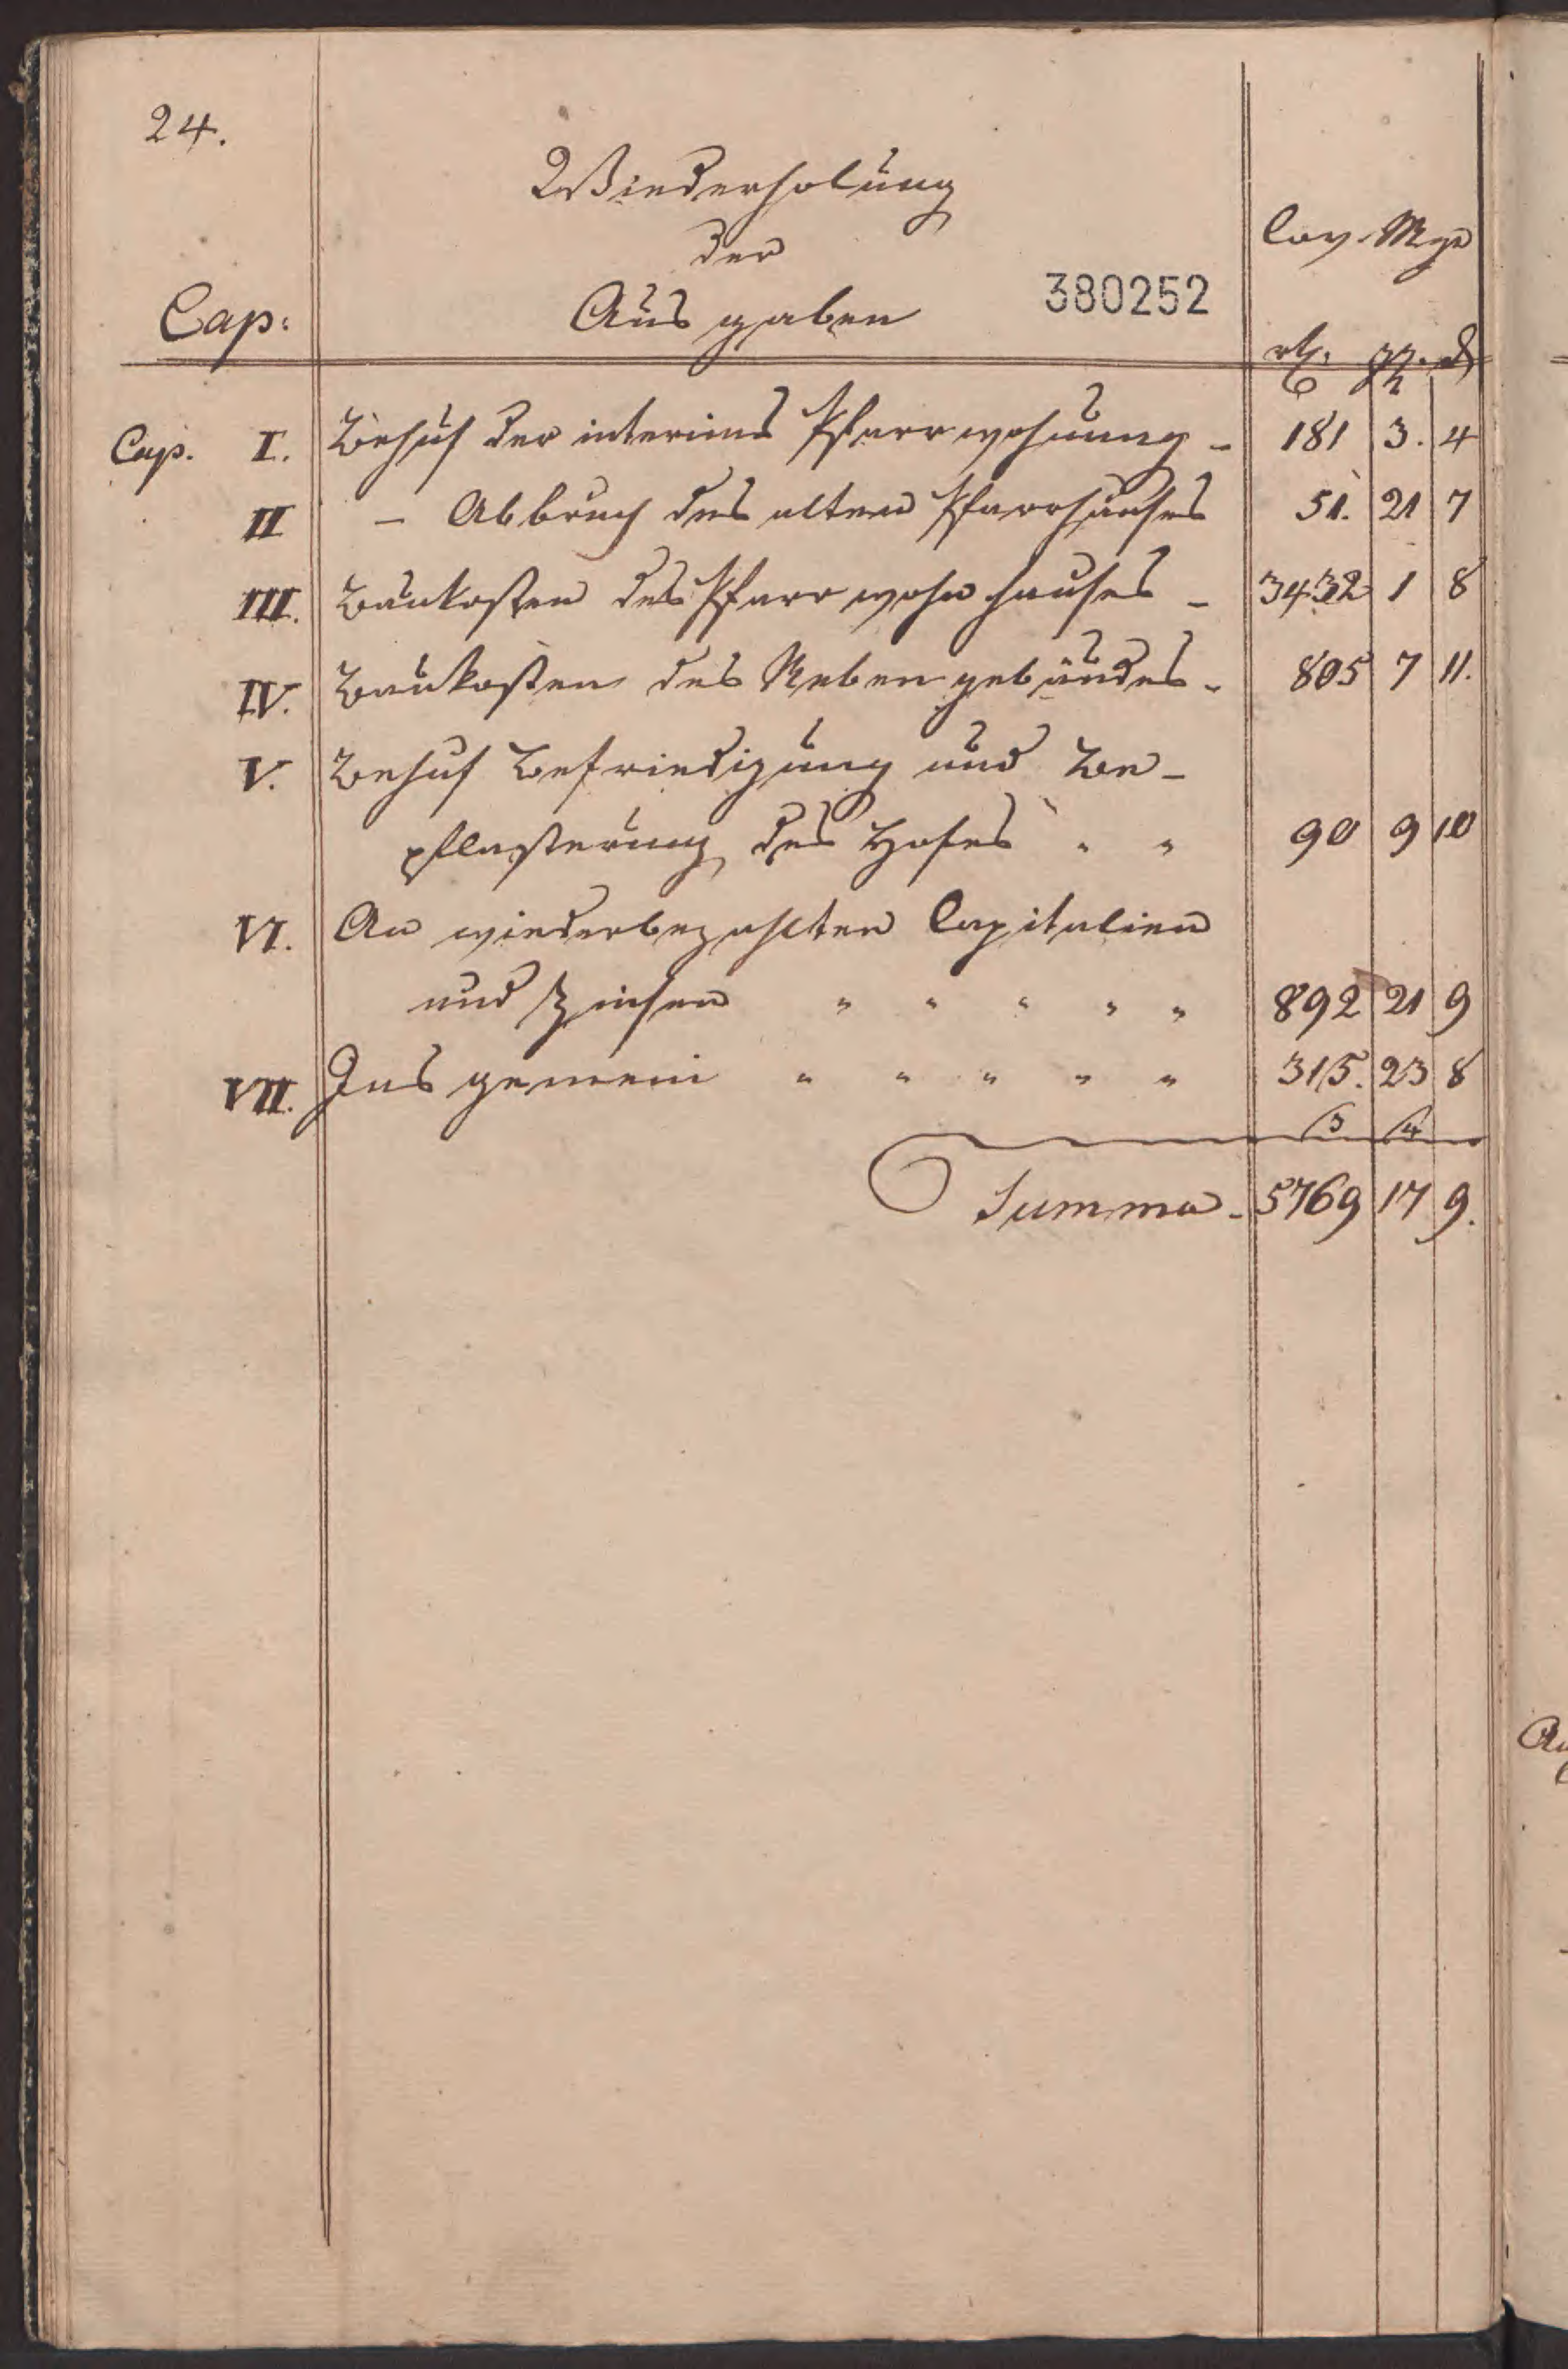 24.
Wiederholung
der
Ausgaben
380252
Cap:
rth. ggr. d
Cap. I. Behuf der interims Pfarrwohnung - 181 3. 4
II - Abbruch des alten Pfarrhauses 51. 21 7
III. Baukosten des Pfarrwohnhauses - 3432 1 8
IV. Baukosten des Nebengebäudes - 805 7 11.
V. Behuf Befriedigung und Be-
pflasterung des Hofes " " 90 9 10
VI. An wiederbezahlten Capitalien
und Zinsen " " " " " 892 21 9
VII. Ins gemein " " " " " 315. 23 8
3 4
Summa - 5769 17 9.